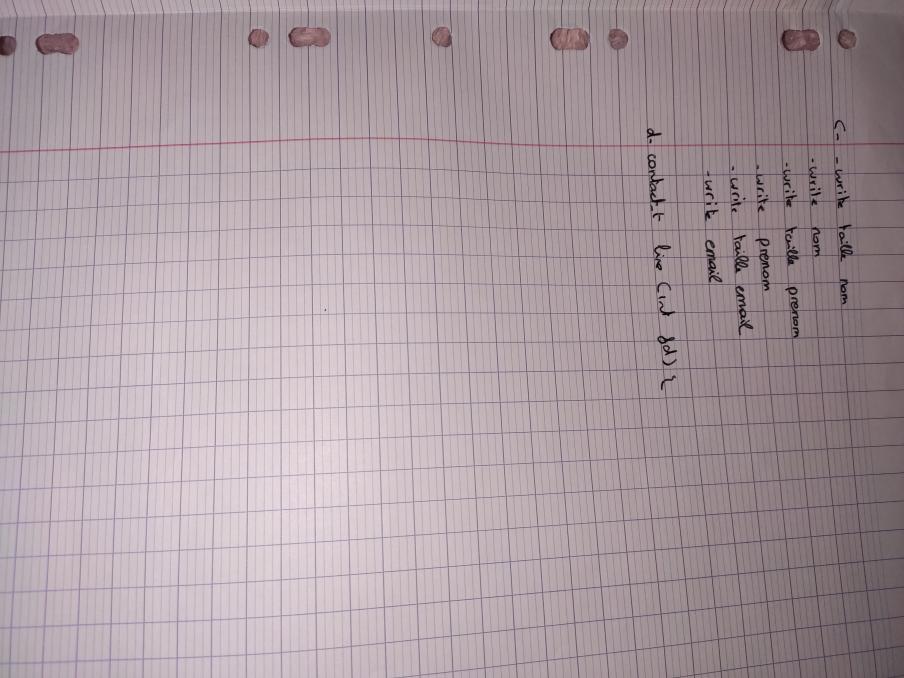 c- - write taille nom
- write nom
- write taille prenom
- write prenom
- write taille email
- write email
d- contact_t lire (int fd) {